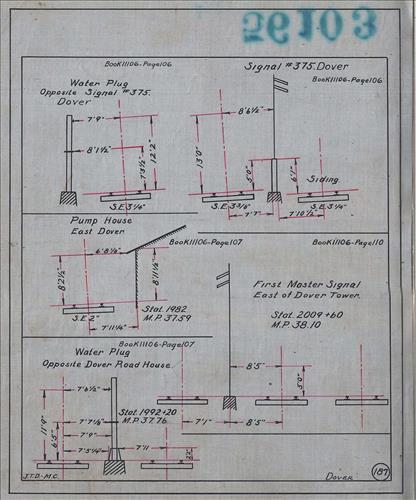 56103
Book11106-Page106
Signal #375. Dover
Book11106-Page106
Water Plug
Opposite Signal #375.
Dover
7'9"
8'1½"
12'2"
7'3½"
S.E. 3¼"
8'6½"
13'0"
5'0"
6'1"
Siding.
S.E. 3⅜"
7'7"
7'10½"
S.E. 3¼"
Pump House
East Dover
Book11106-Page107
Book11106-Page110
6'8½"
8'2½"
8'11½"
S.E. 2"
7'11¼"
Stat. 1982
M.P. 37.59
First Master Signal
East of Dover Tower.
Stat. 2009+60
M.P. 38.10
Book11106-Page107
Water Plug
Opposite Dover Road House.
7'6½"
Stat. 1992+20
M.P. 37.76
11'9"
6'5"
7'7½"
7'9"
7'5¼"
7'11
8'5"
5'0"
7'1"
8'5"
J.T.D-M.C.
Dover
187